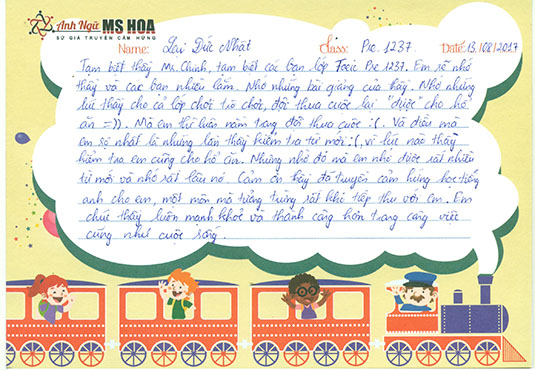 Anh Ngữ MS HOA
SỨ GIẢ TRUYỀN CẢM HỨNG
Name: Lại Đức Nhất Class: Pre 1237. Date: 13/08/2017
Tạm biệt thầy Mr. Chinh, tạm biệt các bạn lớp Toeic Pre 1237. Em sẽ nhớ
thầy và các bạn nhiều lắm. Nhớ những bài giảng của thầy. Nhớ những
lúc thầy cho cả lớp chơi trò chơi, đội thua cuộc lại "được" cho hổ
ăn =)). Mà em thì luôn nằm trong đội thua cuộc :(. Và điều mà
em sợ nhất là những lần thầy kiểm tra từ mới :(, vì lúc nào thầy
kiểm tra em cũng cho hổ ăn. Nhưng nhờ đó mà em nhớ được rất nhiều
từ mới và nhớ rất lâu nữa. Cảm ơn thầy đã truyền cảm hứng học tiếng
anh cho em, một môn mà tưởng chừng rất khó tiếp thu với em. Em
chúc thầy luôn mạnh khoẻ và thành công hơn trong công việc
cũng như cuộc sống.